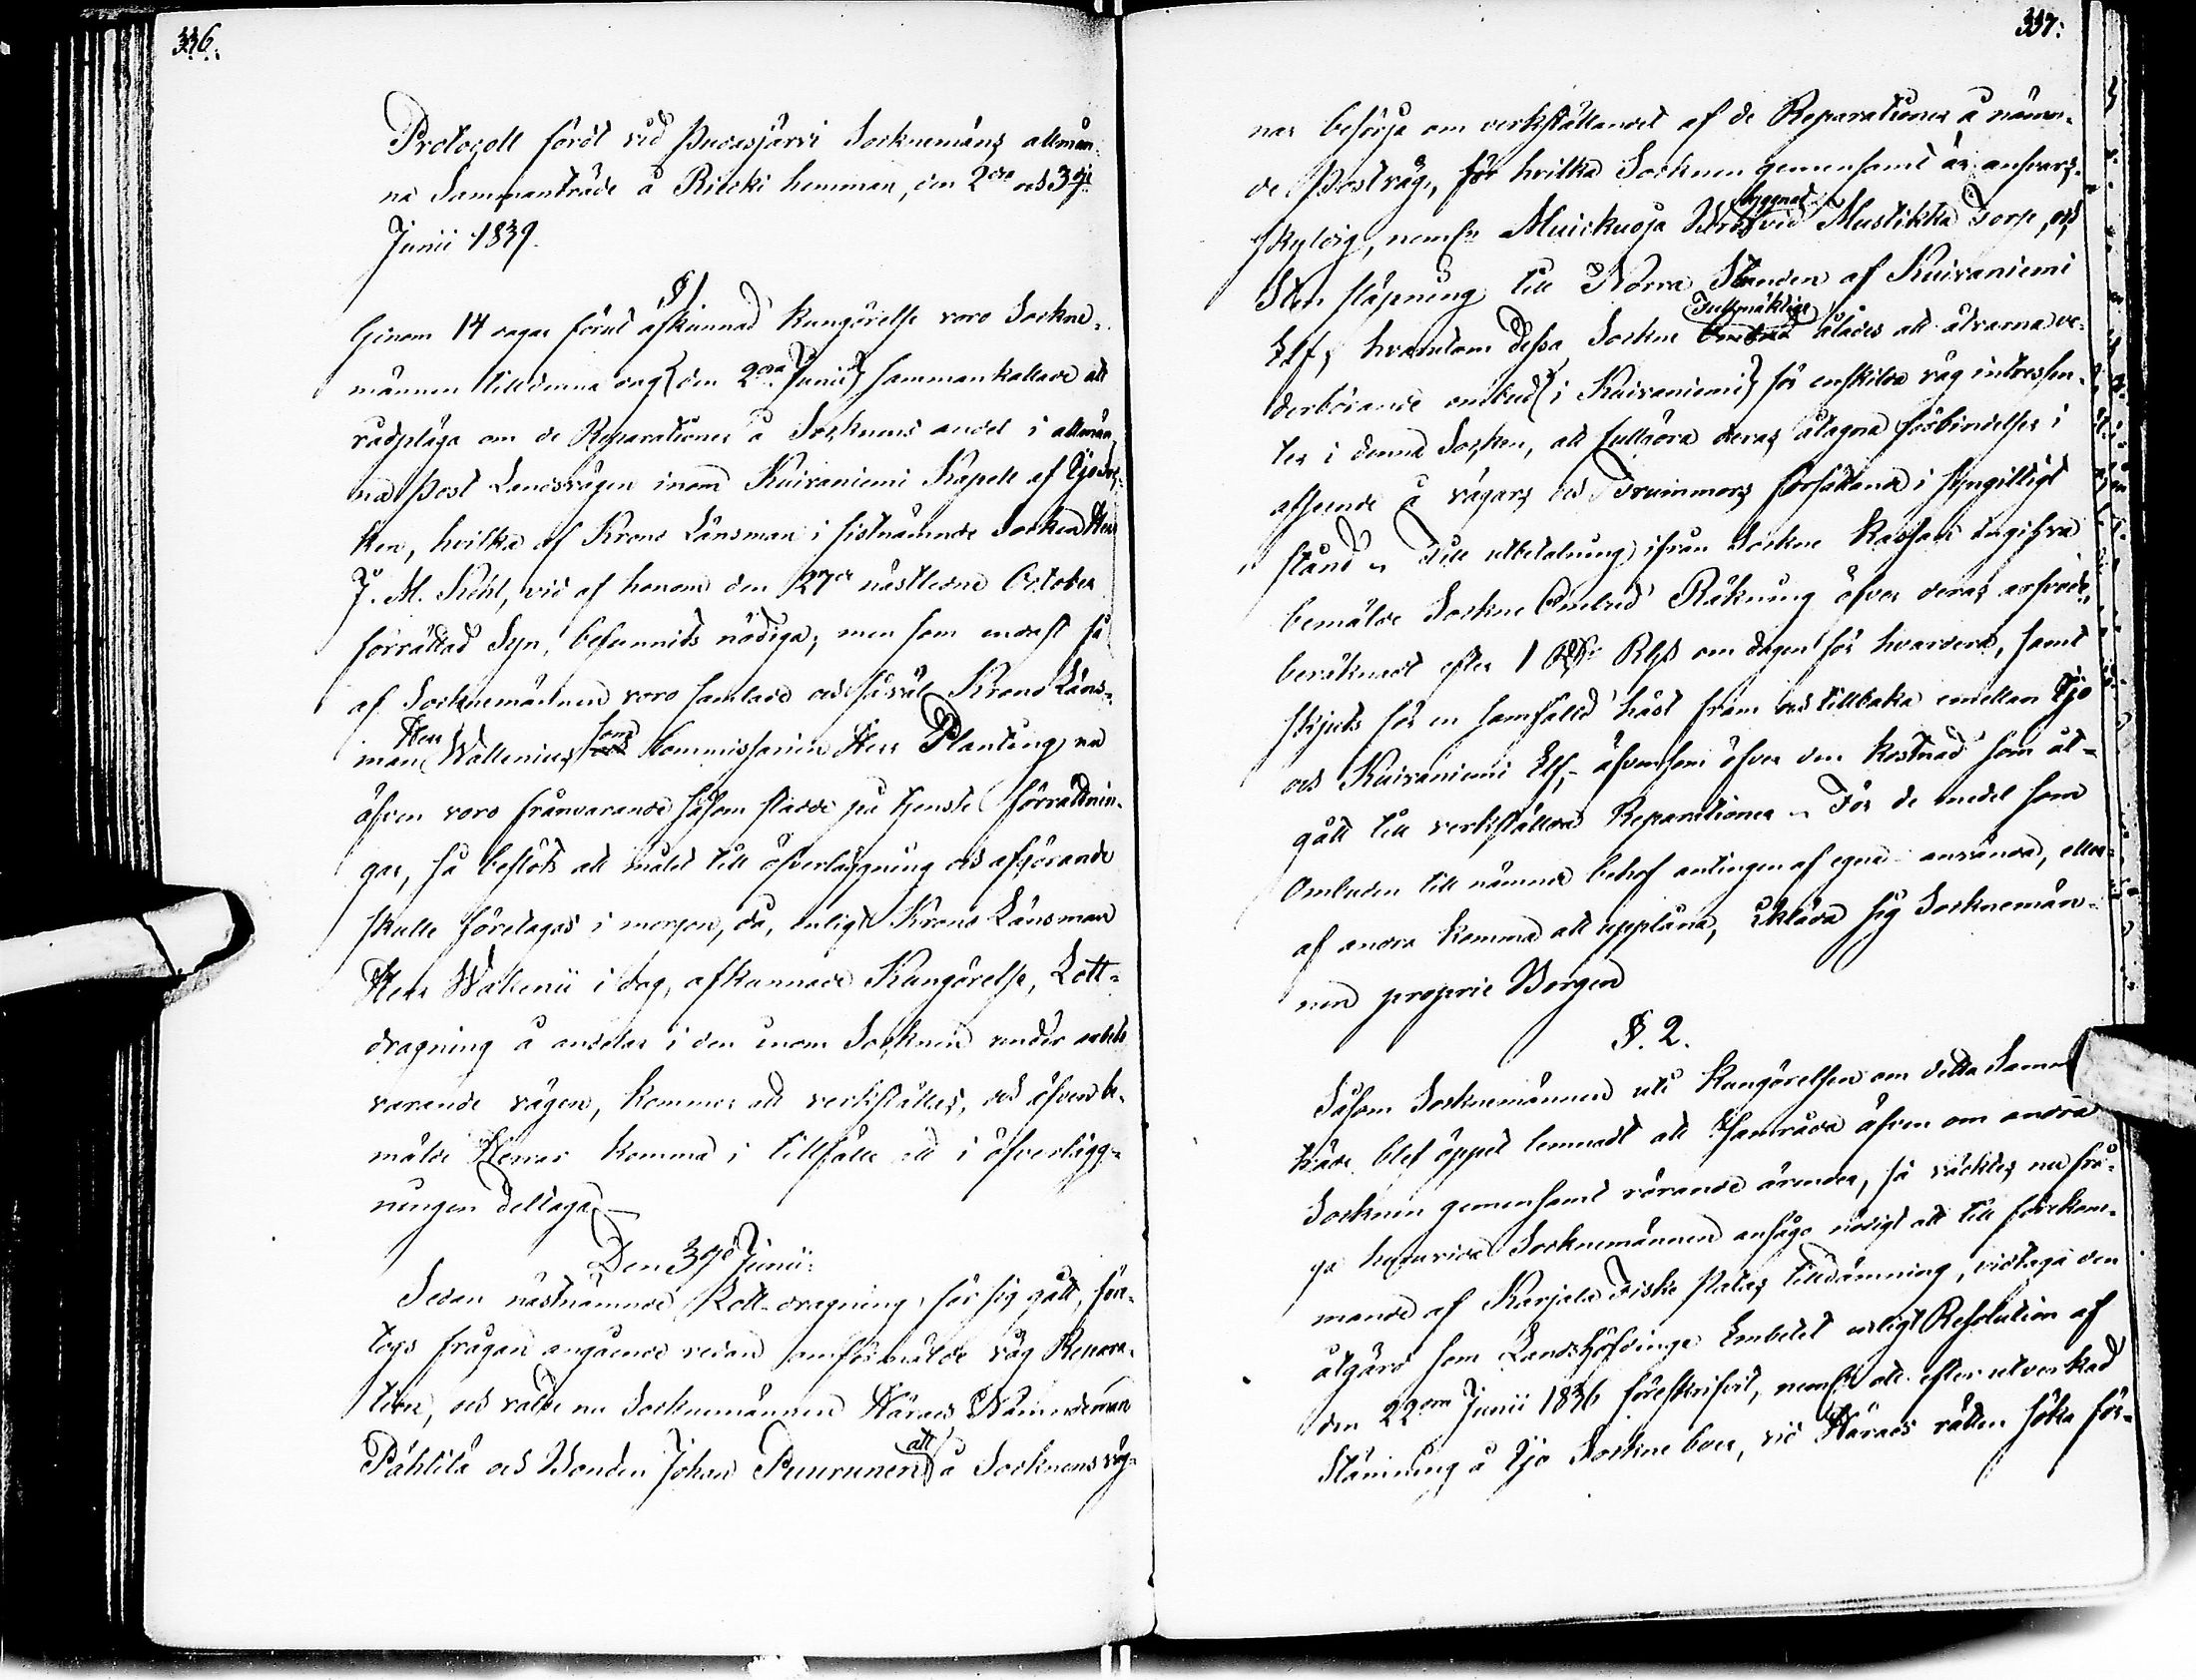 336.
Protocoll fördt vid Pudasjärvi Socknemäns allmän-
na Sammanträde å Riecki hemman, den 2dra och 3dje
Junii 1839.
§1
Genom 14 dagar förut afkunnad Kungörelse voro Sockne-
männen till denna dag (den 2dra Junii) sammankallade att
rådpläga om de Reparationer å Socknens andel i allmän-
na Post Landsvägen inom Kuivaniemi Kapell af Ijo Soc-
ken, hvilka af Krono Länsman i sistnämnde Socken Herr
J. M. Kehl, vid af honom den 27de nästledne October
förrättad Syn, befunnits nödiga; men som endast få
af Socknemännen voro samlade och såväl Krono Läns-
man Herr Wallenius som Kommissarien Herr Planting nu
äfven voro frånvarande såsom stadde på tjenste förrättnin-
gar, så beslöts att målet till öfverläggning och afgörande
skulle företagas i morgon, då, enligt Krono Länsman
Herr Wallenii i dag, afkunnade Kungörelse, Lott-
dragning å andelar i den inom Socknen under arbete
varande vägen, kommer att verkställas, och äfven be-
mälde Herrar komma i tillfälle att i öfverlägg-
ningen deltaga.—
Den 3dje Junii:
Sedan nästnämnde Lott-dragning för sig gått, före-
togs frågan angående redan omförmälde väg Repara-
tion, och valde nu Socknemännen Härads Nämndeman
Pählilä och Bonden Johan Puurunen att å Socknens väg-
337:
nar besörja om verkställandet af de Reparationer å nämn-
de Postväg, för hvilka Socknen gemensamt är ansvars-
skyldig, neml. Muickuoja Bro byggnad vid Mustikka Torp, och
Sten släpning till Norra Stranden af Kuivaniemi
Elf; hvarutom dessa Sockne Fullmäktige ålades att åvarna ve-
derbörande ombud (i Kuivaniemi) för enskilda väg intressen-
ter i denna Socken, att fullgöra deras åtagna förbindelser i
afseende å vägars och Trummors försättande i syngilligt
stånd. Till utbetalning ifrån Sockne Kassan ingifva
bemälde Sockne Ombud Räkning öfver deras arfvode
beräknadt efter 1 Rub. om dagen för hvardera, samt
skjuts för en samfälld häst fram och tillbaka emellan Ijo
och Kuivaniemi Elf,- äfvensom öfver den kostnad som åt-
gått till verkställda Reparationer. För de medel som
Ombuden till nämnde behof antingen af egna använda, eller
af andra komma att upplåna, ikläda sig Socknemän-
nen proprie Borgen
§. 2.
Såsom Socknemännen uti Kungörelsen om detta Samman-
träde blef öppet lemnadt att samråda äfven om andra
Socknen gemensamt rörande ärender, så väcktes nu frå-
ga huruvida Socknemännen ansågo nödigt att till förekom-
mande af Karjala Fiske patas tilldämning, vidtaga den
åtgärd som Landshöfdinge Embetet enligt Resolution af
den 22dra Junii 1836 föreskrifvit, neml. att efter utverkad
Stämning å Ijo Sockne boer, vid Härads rätten söka för-